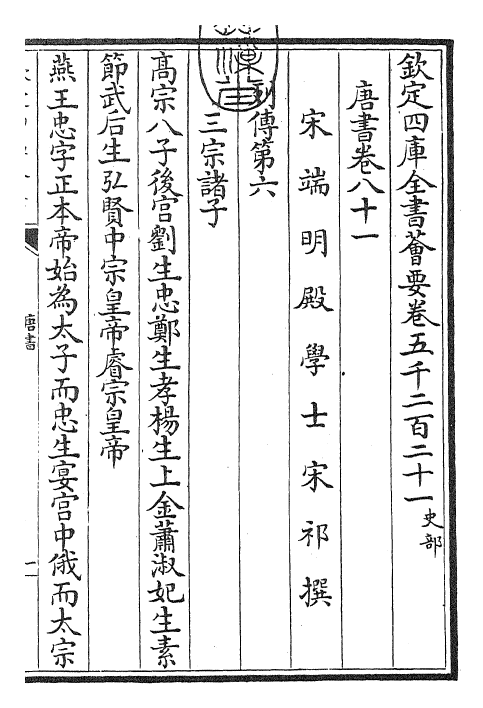 欽定四庫全書薈要卷五千二百二十一史部
唐書卷八十一
宋端明殿學士宋祁撰
列傳第六
三宗諸子
高宗八子後宮劉生忠鄭生孝楊生上金蕭淑妃生素
節武后生弘賢中宗皇帝睿宗皇帝
燕王忠字正本帝始為太子而忠生宴宮中俄而太宗
唐書
一